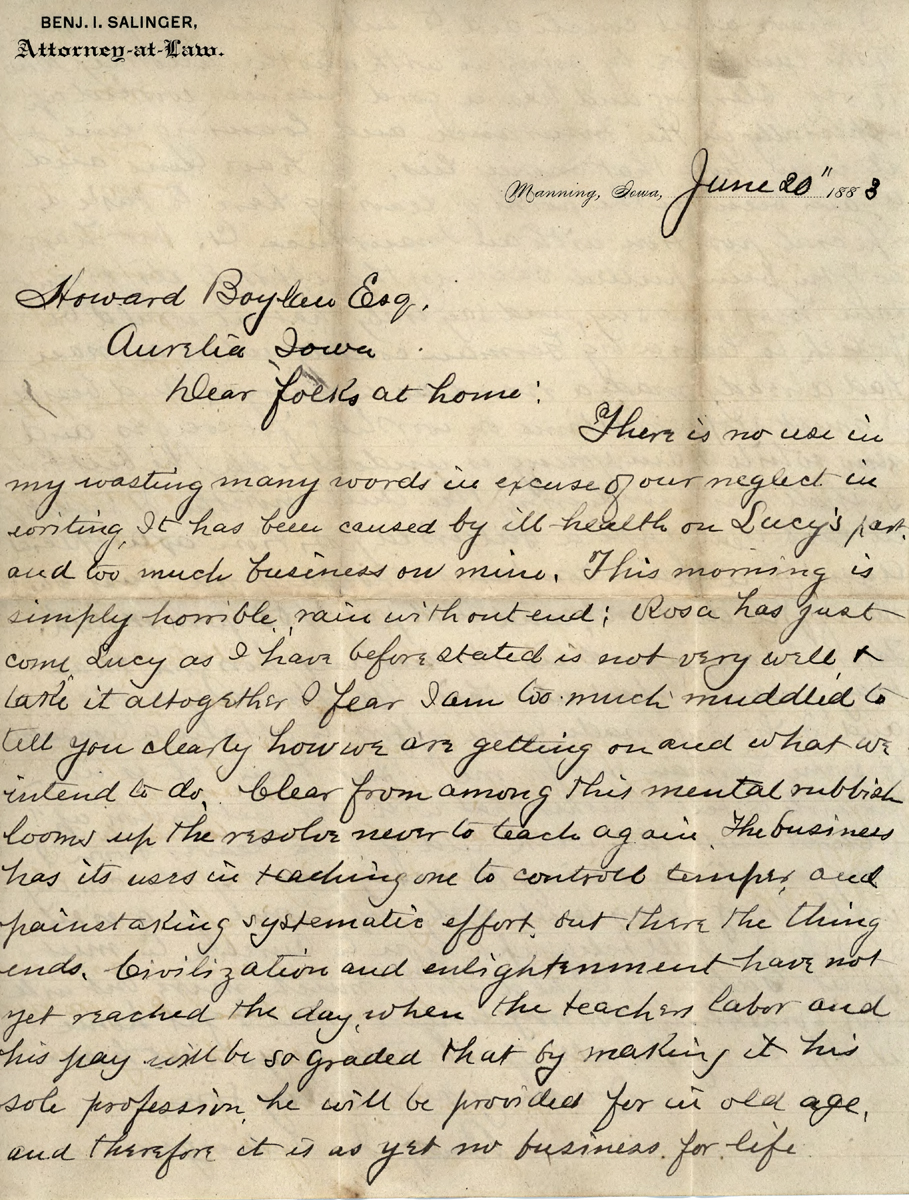 BENJ. I. SALINGER,
Attorney-at-Law.
Manning, Iowa, June 20" 1883
Howard Boylan Esq.
Aurelia, Iowa
Dear folks at home:
There is no use in
my wasting many words in excuse of our neglect in
writing, It has been caused by ill-health on Lucy's part,
and too much business on mine. This morning is
simply horrible, rain without end; Rosa has just
come, Lucy as I have before stated is not very well &
take it altogether I fear I am too much muddled to
tell you clearly how we are getting on and what we
intend to do. Clear from among this mental rubbish
looms up the resolve never to teach again. The business
has its uses in teaching one to controll temper, and
painstaking systematic effort, but there the thing
ends. Civilization and enlightenment have not
yet reached the day, when the teachers labor and
his pay will be so graded that by making it his
sole profession, he will be provided for in old age,
and therefore it is as yet no business for life